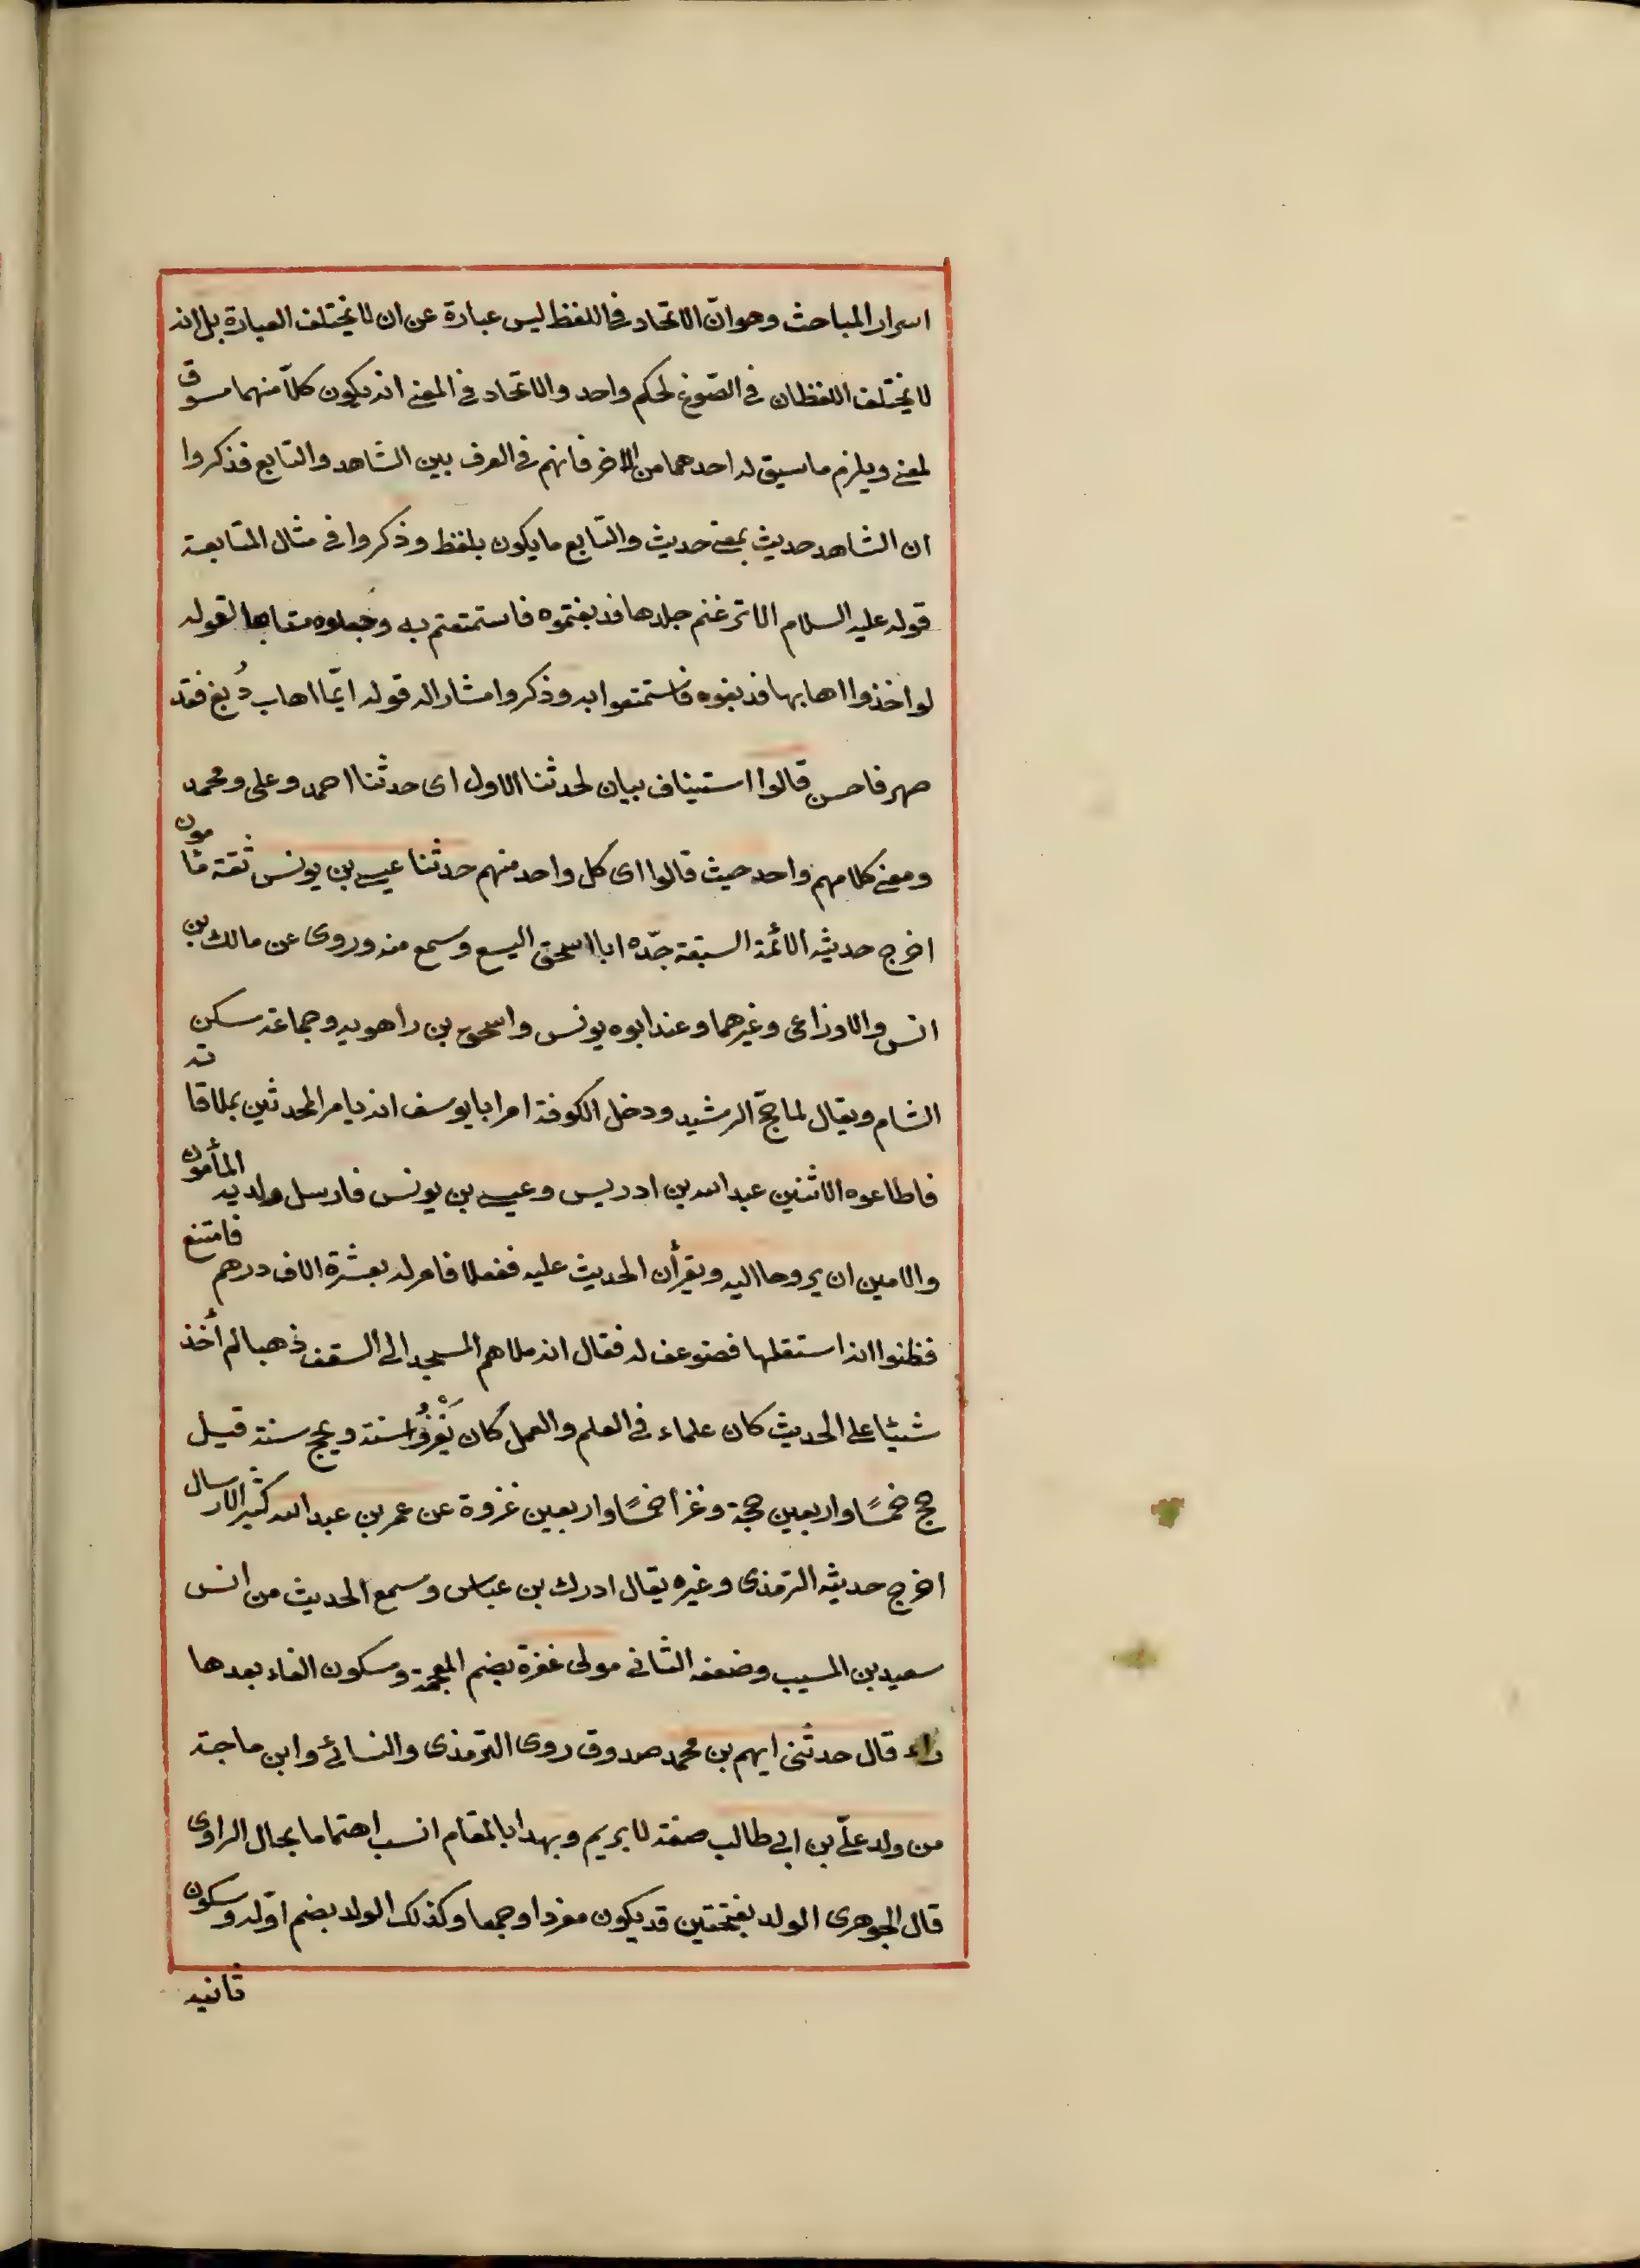 اسرار المباحث وهو انّ الاتحاد فى اللفظ ليس عبارة عن ان لا يختلف العبارة بل انه
لا يختلف اللفظان فى الصّوغ لحكم واحد والاتحاد فى المعنى انه يكون كلاّ منهما مسوق
لمعنى ويلزم ما سيق له احدهما من الاخر فانهم فى العرف بين الشاهد والتابع فذكروا
ان الشاهد حديث بمعنى حديث والتابع ما يكون بلفظ وذكروا فى مثال المتابعة
قوله عليه السلام الا تر غنم جلدها فدبغتموه فاستمتعتم به وجعلوه متابعا لقوله
لو اخذوا اهابها فدبغوه فاستمتعوا به وذكروا مثاله قوله ايّما اهاب دُبغ فقد
طهر فاحسن قالوا استيناف بيان لحدثنا الاول اى حدثنا احمد وعلى ومحمد
ومعنى كلامهم واحد حيث قالوا اى كل واحد منهم حدثنا عيسى بن يونس ثقة مأمون
اخرج حديثه الائمة الستة جدّه ابا اسحق السبيع وسمع منه وروى عن مالك بن
انس والاوزاعى وغيرهما وعنه ابوه يونس واسحق بن راهويه وجماعة سكن
الشام ويقال لما حجّ الرشيد ودخل الكوفة امر ابا يوسف انه يامر المحدثين بملاقاته
فاطاعوه الا اثنين عبد الله بن ادريس وعيسى بن يونس فارسل ولديه المأمون
والامين ان يروحا اليه ويقرأن الحديث عليه ففعلا فامر له بعشرة الاف درهم فامتنع
فظنوا انه استقلها فضوعف له فقال انه ملاهم المسجد الى السقف ذهبا لم أخذ
شيئا على الحديث كان علماء فى العلم والعمل كان يَغْزُو سنة ويحج سنة قيل
حج خمسًا واربعين حجة وغزا خمسًا واربعين غزوة عن عمر بن عبد الله كثير الارسال
اخرج حديثه الترمذى وغيره يقال ادرك بن عباس وسمع الحديث من انس
سعيد بن المسيب وضعفه الثانى مولى غفرة بضم المعجمة وسكون الفاء بعدها
راء قال حدثنى ابهم بن محمد صدوق روى الترمذى والنسائى وابن ماجة
من ولد علىّ بن ابى طالب صفة لابرهيم وبهذا بالمقام انسب اهتماما بحال الراوى
قال الجوهرى الولد بفتحتين قد يكون مفردا وجمعا وكذلك الولد بضم اوّله وسكون
ثانيه